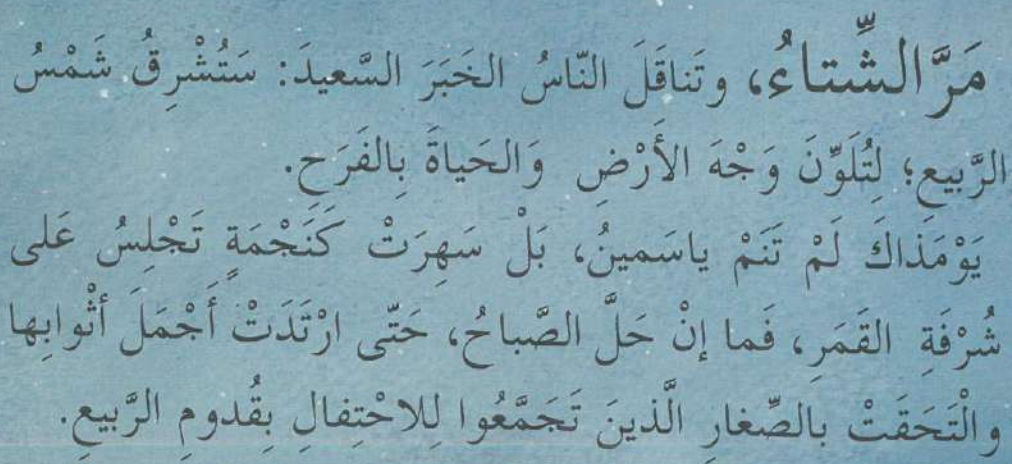 مَرَّ الشِّتاءُ، وتَناقَلَ النّاسُ الخَبَرَ السَّعيدَ: سَتُشْرِقُ شَمْسُ
الرَّبيعِ؛ لِتُلَوِّنَ وَجْهَ الأَرْضِ وَالحَياةَ بِالفَرَحِ.
يَوْمَذاكَ لَمْ تَنَمْ ياسَمينُ، بَلْ سَهِرَتْ كَنَجْمَةٍ تَجْلِسُ عَلى
شُرْفَةِ القَمَرِ، فَما إنْ حَلَّ الصَّباحُ، حَتّى ارْتَدَتْ أَجْمَلَ أثْوابِها
والْتَحَقَتْ بالصِّغارِ الَّذينَ تَجَمَّعُوا لِلاحْتِفالِ بِقُدومِ الرَّبيعِ.